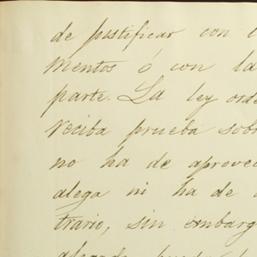 de justificar con
mentos ó con la
parte. La ley orde
reciba prueba sobr
no ha de aprovec
alega ni ha de
trario, sin embarg